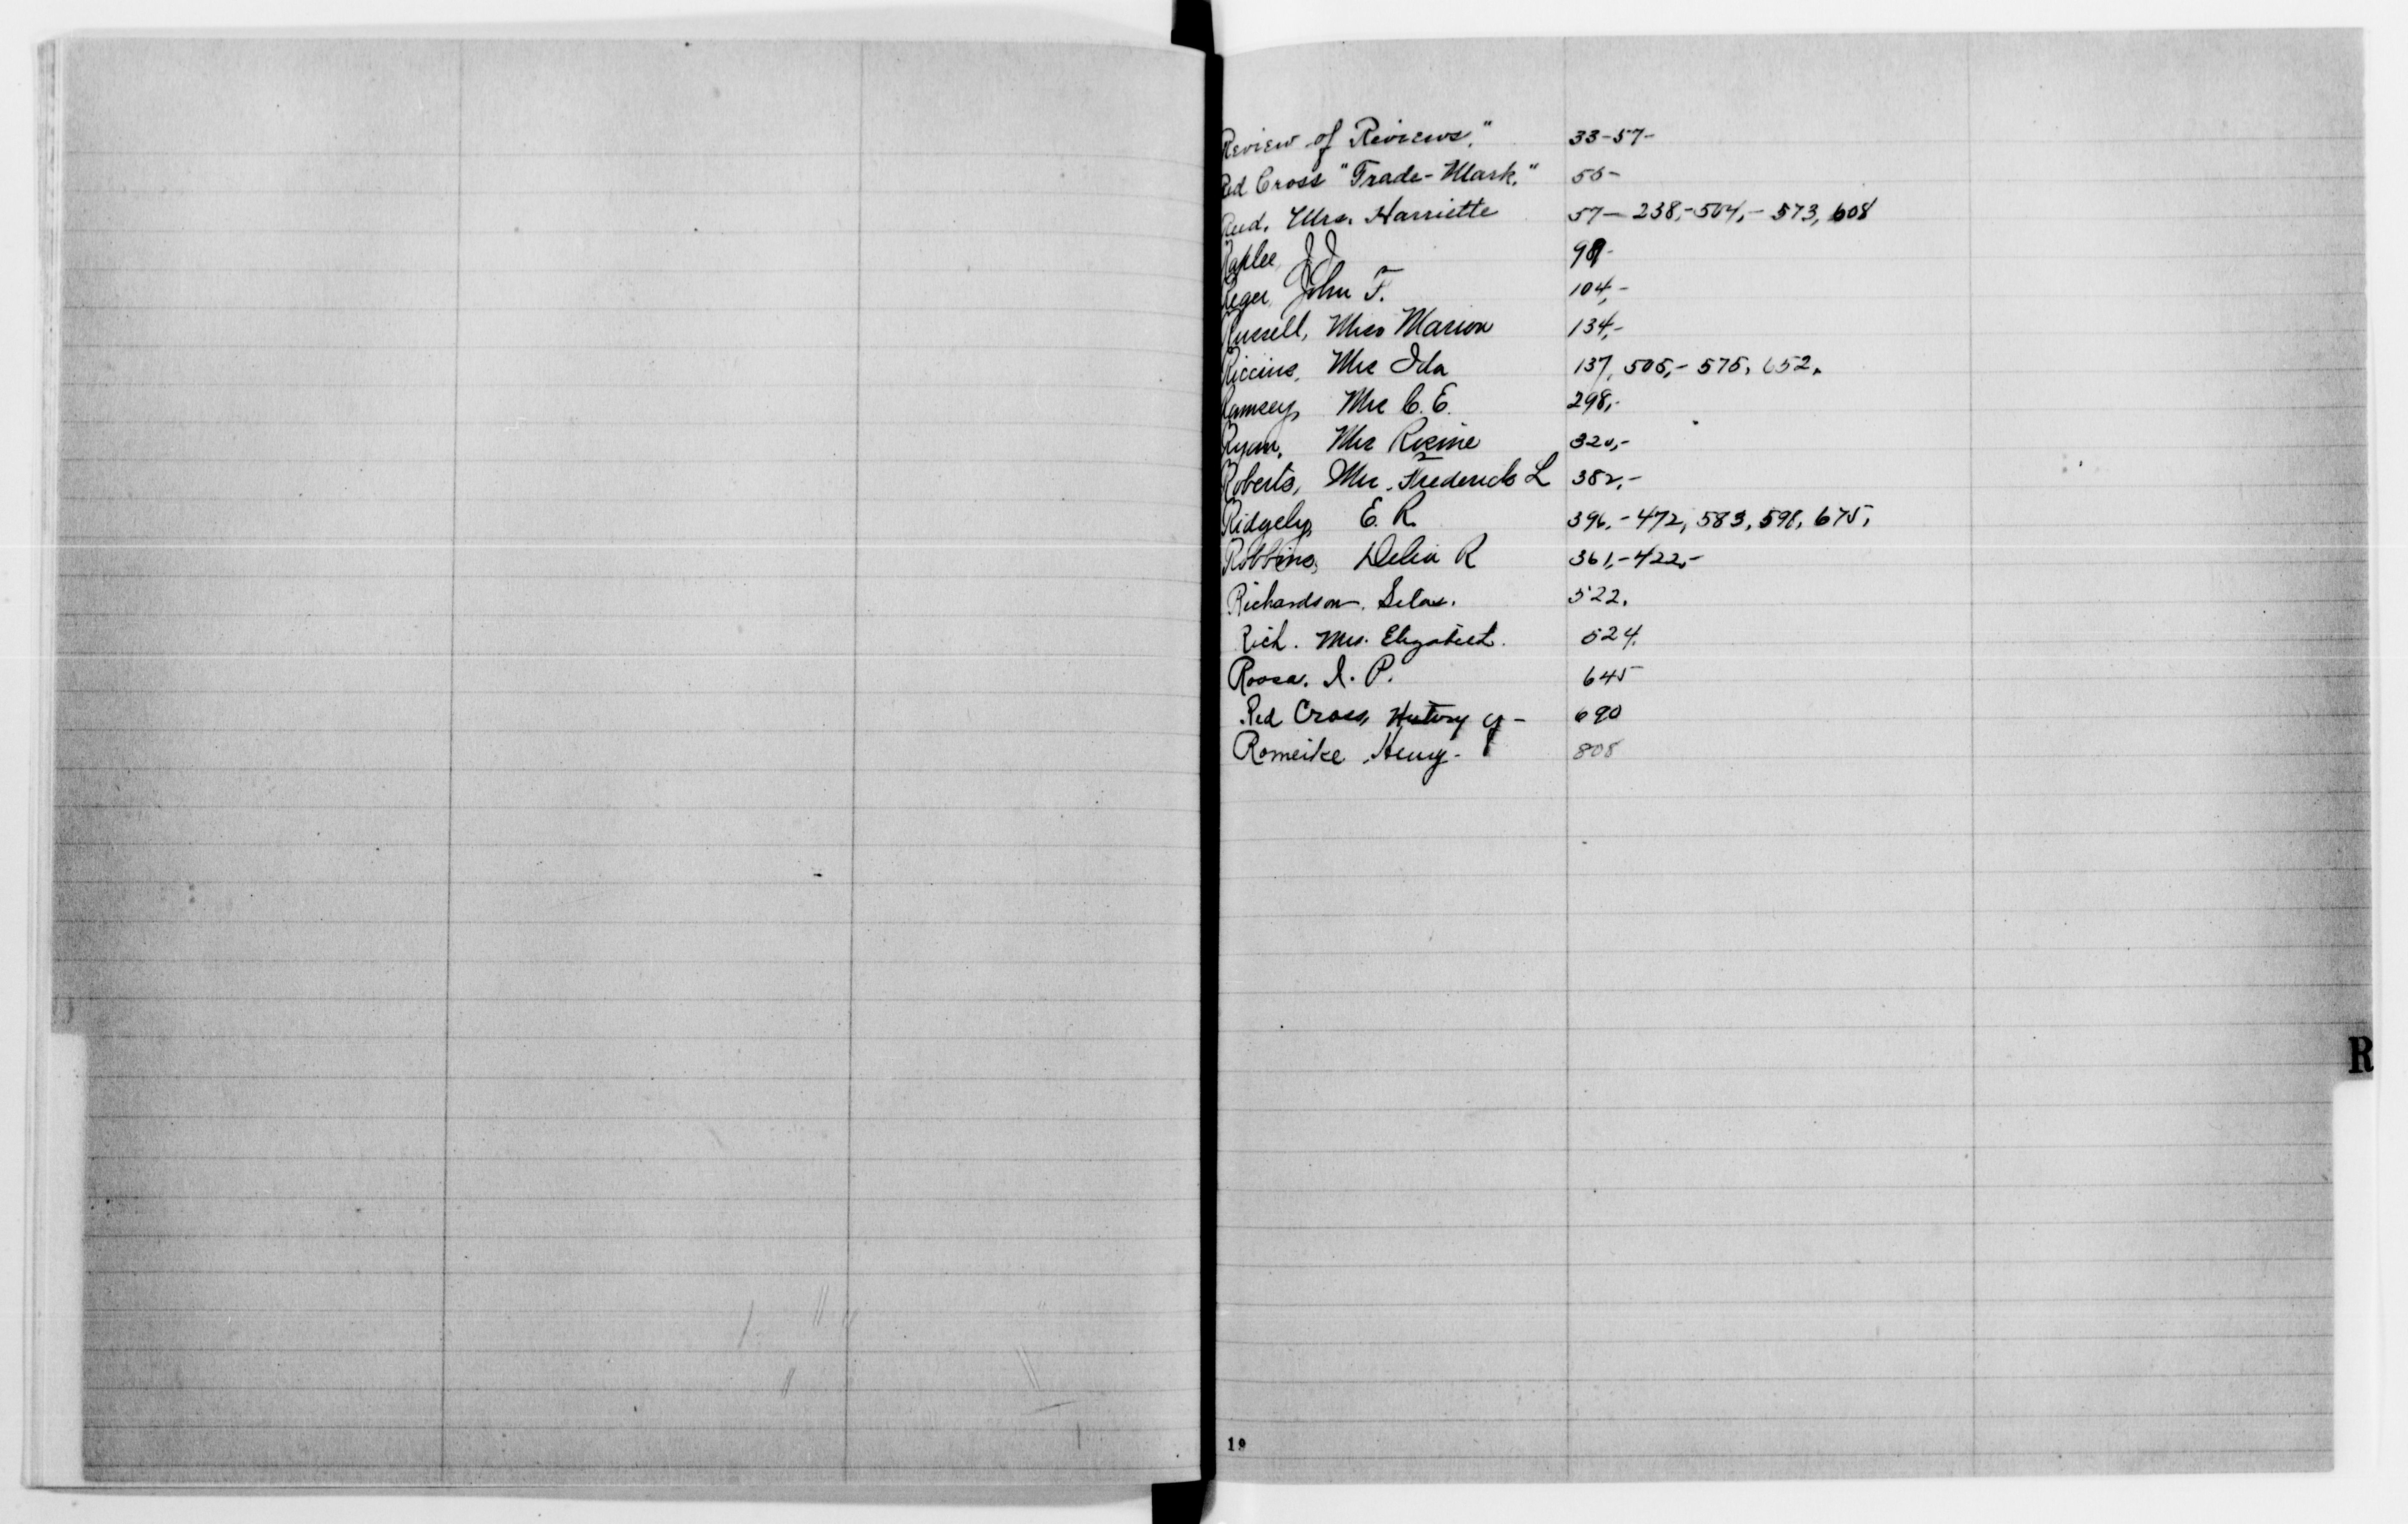 Review of Reviews." 33-57-
Red Cross "Trade-Mark." 56-
Reed, Mrs. Harriette 57- 238,-504,- 573, 608
Raplee, J J 98-
Reger, John F. 104,-
Russell, Miss Marion 134,-
Riccius, Mrs Ida 137, 505,- 575, 652.
Ramsey, Mrs C. E. 298,-
Ryan, Mrs Rosine 320,-
Roberts, Mrs. Frederick L 382,-
Ridgely, E. R. 396,-472, 583, 598, 675,
Robbins, Delia R 361,-422,-
Richardson, Silas. 522.
Rich. Mrs. Elizabeth. 524.
Roosa. I. P. 645
Red Cross, History of - 690
Romeike, Henry- 808
R
19